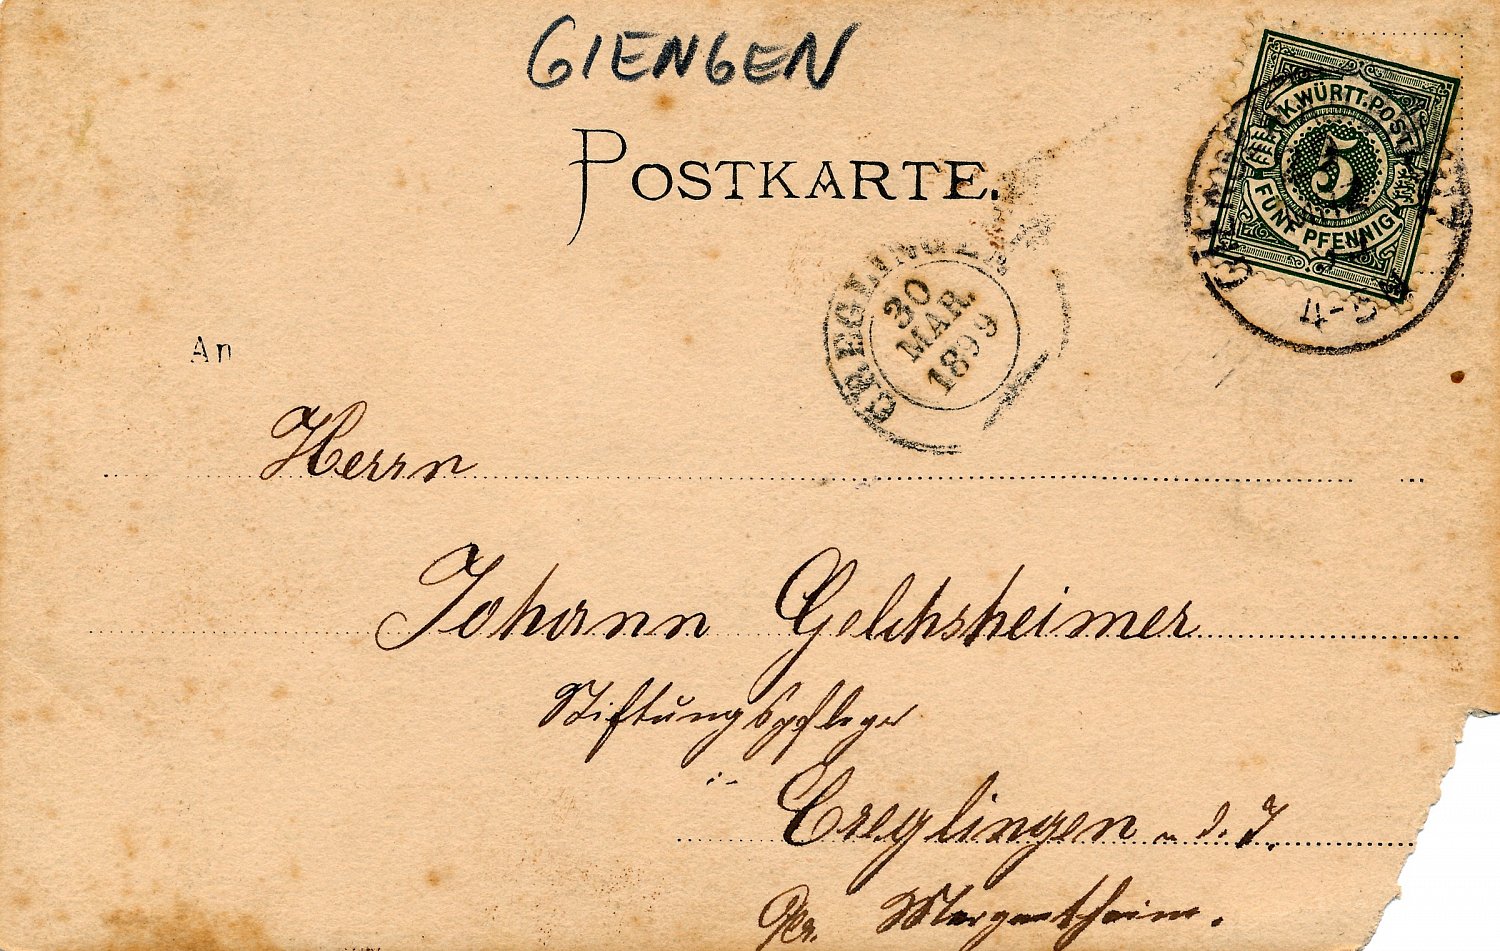 GIENGEN
POSTKARTE.
K. WÜRTT. POST
5
FÜNF PFENNIG
CREGLINGEN
30
MAR.
1899
An
Herrn
Johann Gelchsheimer
Stiftungspfleger
Creglingen a. d. T.
Mergentheim.